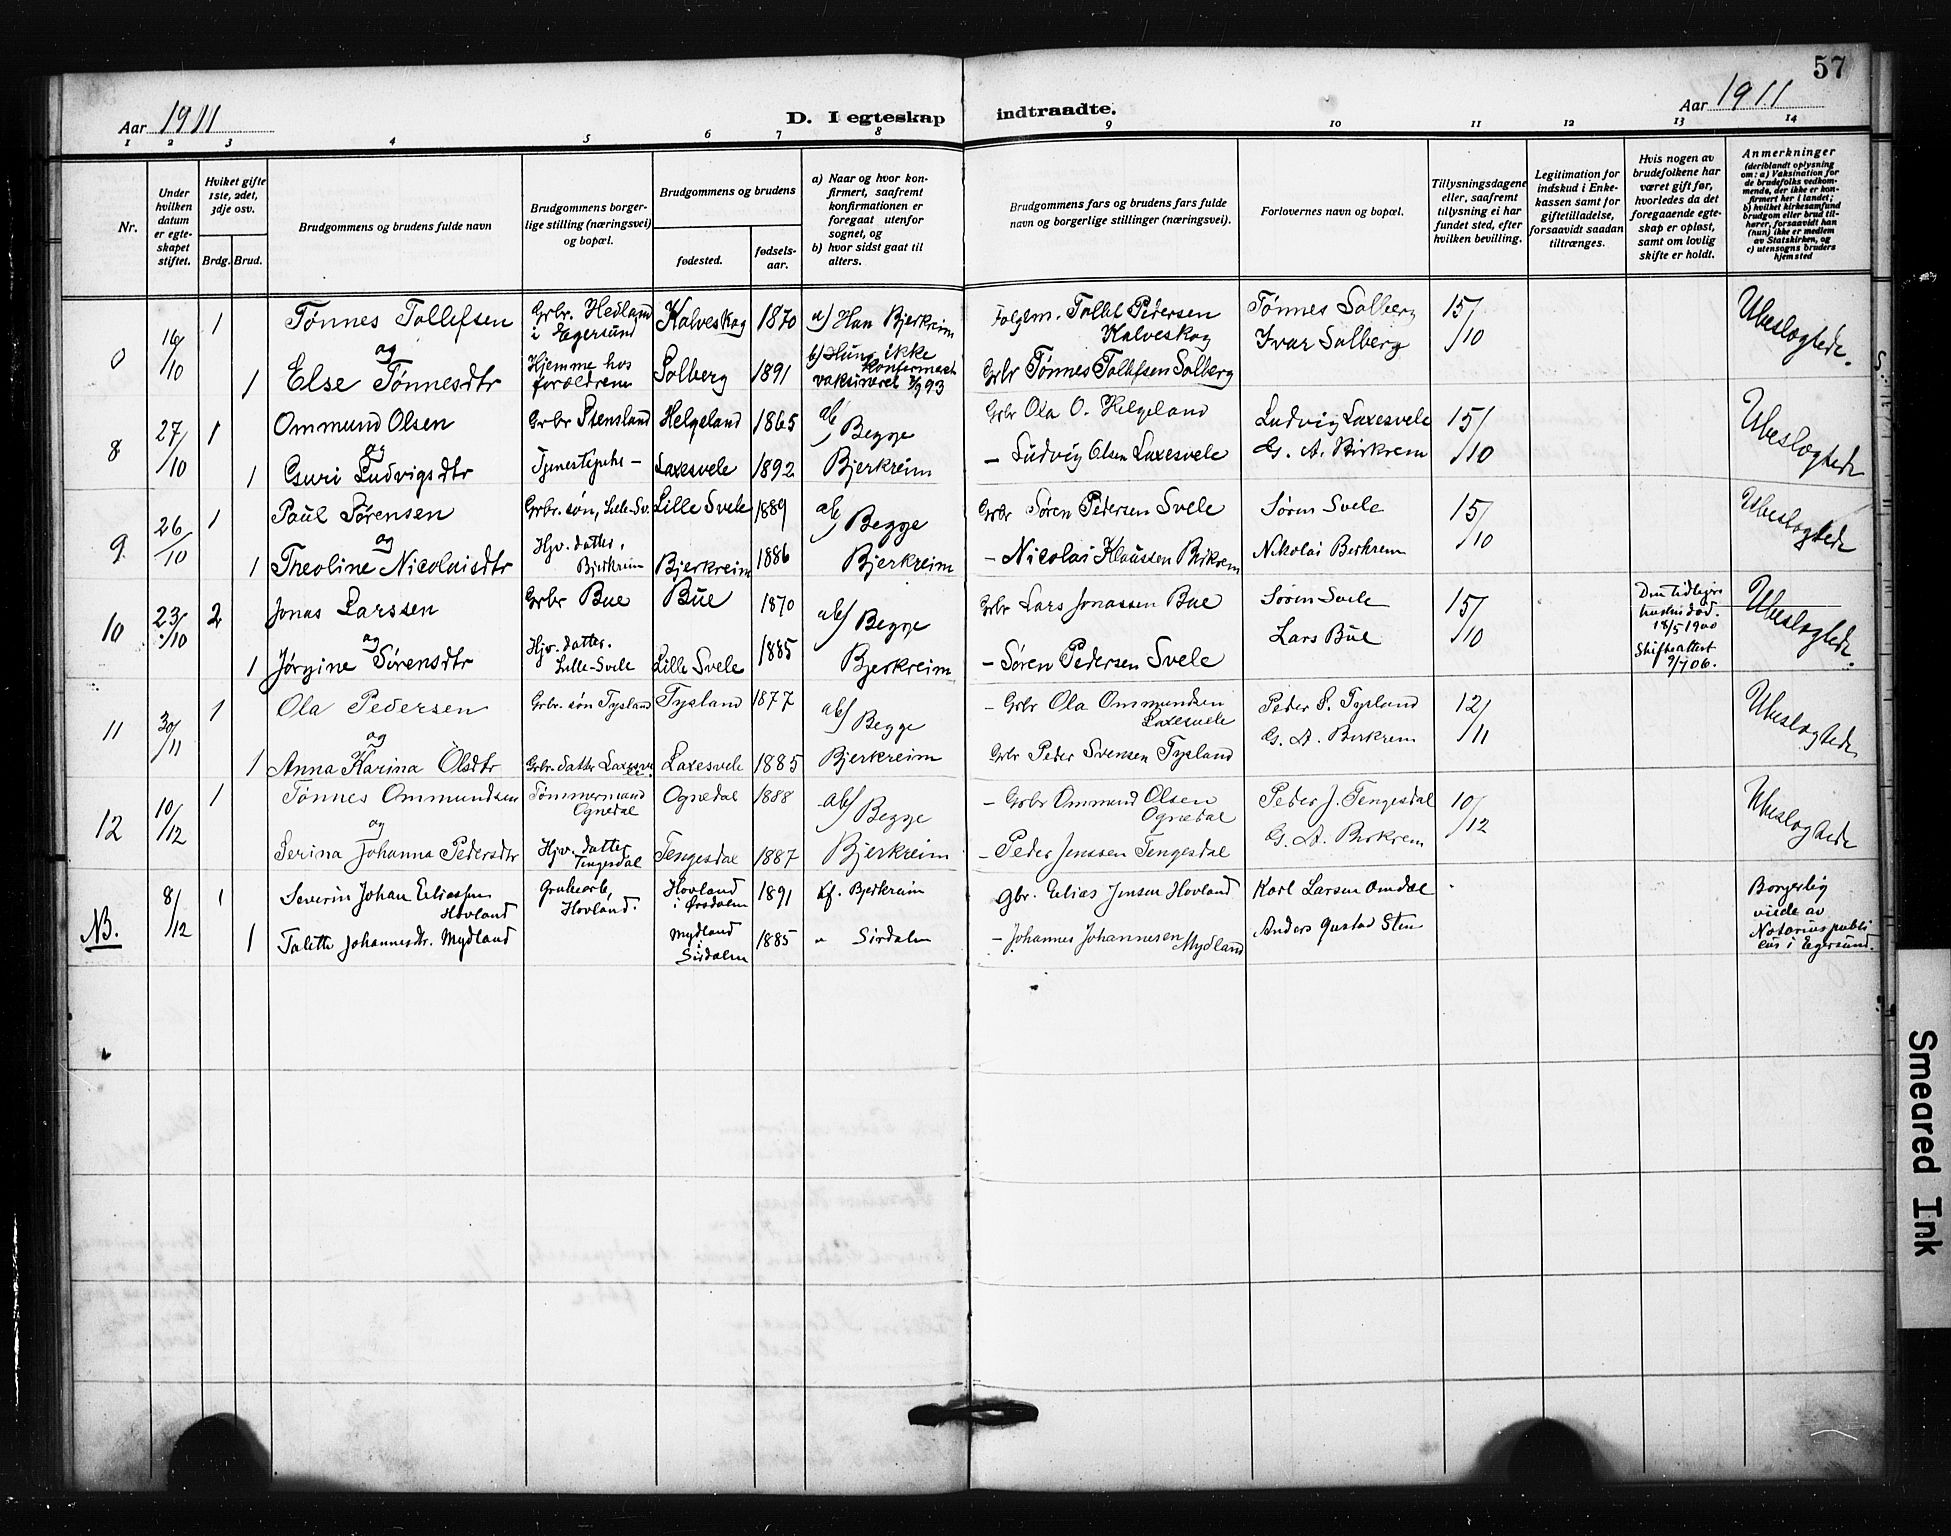 57
Aar 1911
D. I egteskap indtraadte.
Aar 1911
1 2 3 4 5 6 7 8 9 10 11 12 13 14
Nr.
Under hvilken datum er egteskapet stiftet.
Hviket gifte 1ste, 2det, 3dje osv.
Brdg. Brud.
Brudgommens og brudens fulde navn
Brudgommens borgerlige stilling (næringsvei) og bopæl.
Brudgommens og brudens
fødested.
fødselsaar.
a) Naar og hvor konfirmert, saafremt konfirmationen er foregaat utenfor sognet, og
b) hvor sidst gaat til alters.
Brudgommens fars og brudens fars fulde navn og borgerlige stillinger (næringsvei).
Forlovernes navn og bopæl.
Tillysningsdagene eller, saafremt tillysning ei har fundet sted, efter hvilken bevilling.
Legitimation for indskud i Enkekassen samt for giftetilladelse, forsaavidt saadan tiltrænges.
Hvis nogen av brudefolkene har været gift før, hvorledes da det foregaaende egteskap er opløst, samt om lovlig skifte er holdt.
Anmerkninger
(deriblandt oplysning om: a) Vaksination for de brudefolks vedkommende, der ikke er konfirmert her i landet; b) hvilket kirkesamfund brudgom eller brud tilhører, forsaavidt han (hun) ikke er medlem av Statskirken, og c) utensogns bruders hjemsted
16/10 1 Tønnes Tollefsen Grbr. Hedland i Egersund Kalveskog 1870 a) Han Bjerkreim Tollef Pedersen Kalveskog Tønnes Solberg 15/10 Ubeslogtede.
og
1 Else Tønnesdtr Hjemme hos forældrene Solberg 1891 b) Hun ikke konfirmert vaksineret 93 Grbr Tønnes Tollefsen Solberg Ivar Solberg
8 27/10 1 Ommund Olsen Grbr Stensland Helgeland 1865 ab) Begge Grbr Ola O. Helgeland Ludvig Laxesvele 15/10 Ubeslogtede
og
1 Guri Ludvigsdtr Laxesvele 1892 Bjerkreim – Ludvig Olsen Laxesvele G. A. Birkrem
9 26/10 1 Paul Sørensen Grbr. søn, Lille-Sv. Lille Svele 1889 ab) Begge Grbr Søren Pedersen Svele Søren Svele 15/10 Ubeslogtede
og
1 Theoline Nicolaisdtr Hjv. datter, Bjerkreim Bjerkreim 1886 Bjerkreim – Nicolai Klaussen Birkrem Nikolai Berkrem
10 23/10 2 Jonas Larssen Grbr Bue Bue 1870 ab) Begge Grbr Lars Jonassen Bue Søren Svele 15/10 Den tidligere hustru død. 18/5 1900 Skifteattest 9/7 06. Ubeslogtede.
og
1 Jørgine Sørensdtr Hjv. datter. Lille-Svele Lille Svele 1885 Bjerkreim – Søren Pedersen Svele Lars Bue
11 30/11 1 Ola Pedersen Grbr. søn Tysland Tysland 1877 ab) Begge – Grbr Ola Ommundsen Laxesvele Peder S. Tysland 12/11 Ubeslogtede
og
1 Anna Karina Olsdtr Grbr. datter Laxesv. Laxesvele 1885 Bjerkreim Grbr Peder Svensen Tysland G. A. Berkrem
12 10/12 1 Tønnes Ommundsen Tømmermand Ognedal Ognedal 1888 ab) Begge – Grbr Ommund Olsen Ognedal Peder J. Tengesdal 10/12 Ubeslogtede
og
1 Serina Johanna Pedersdtr Hjv. datter Tengesdal Tengesdal 1887 Bjerkreim – Peder Jenssen Tengesdal G. A. Birkrem
NB. 8/12 1 Severin Johan Eliassen Hovland Grubearb. Hovland. Hovland i Ørsdalen 1891 kf. Bjerkreim Gbr. Elias Jensen Hovland Karl Larsen Omdal Borgerlig viede av Notarius publicus i Egersund.
1 Talette Johannesdtr. Mydland Mydland Sirdalen 1885 " Sirdalen – Johannes Johannesen Mydland Anders Gustav Sten
Smeared Ink